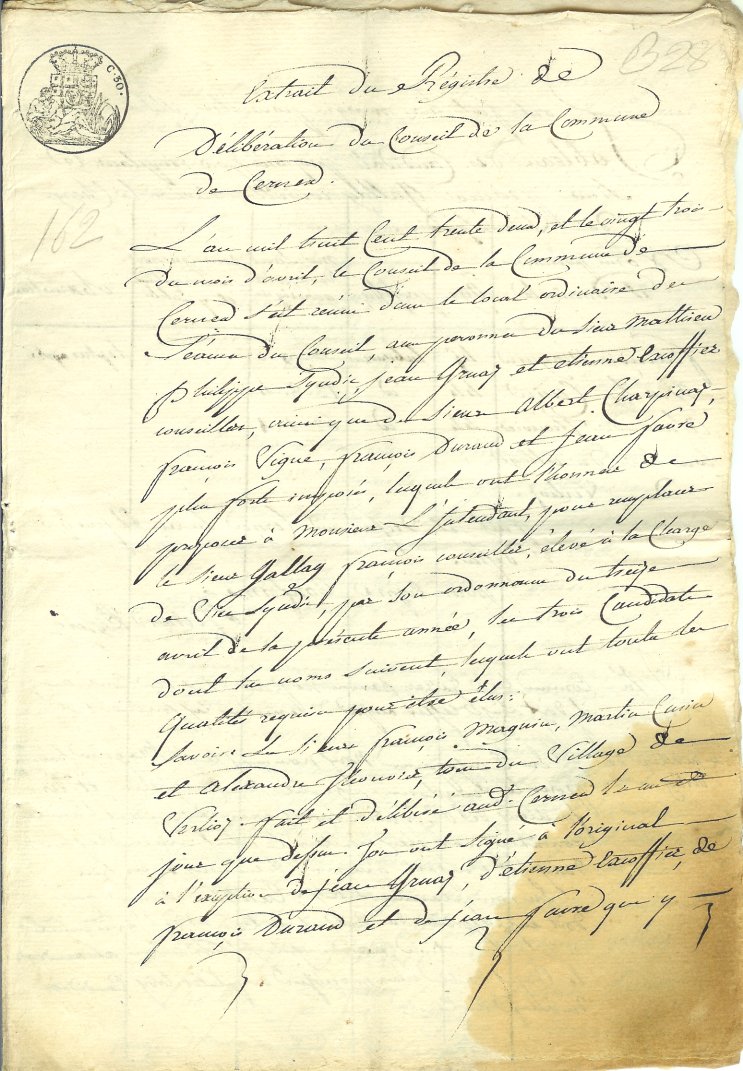 C. 50.
B28
162
Extrait du Régistre de
Délibération du Conseil de la Commune
de Cernex.
L'an mil huit Cent trente deux, et le vingt trois
du mois d'avril, le Conseil de la Commune de
Cernex s'est réuni dans le local ordinaire des
Séances du Conseil, aux personnes du Sieur Mathieu
Philippe Syndic, Jean Gruaz et etienne Excoffier
conseillers, ainsi que des Sieurs Albert Charpinaz,
françois Vigne, françois Durand et Jean favre
plus forts imposés, lesquels ont l'honneur de
proposer à Monsieur L'Intendant, pour remplacer
le Sieur Gallay françois conseiller, élevé à la Charge
de Vice Syndic, par son ordonnance du treize
avril de la présente année, les trois Candidats
dont les noms suivent, lesquels ont toutes les
Qualités requises pour être élus:
Savoir: Les Sieurs françois Magnin, Martin Cusin
et Alexandre, tous du Village de
Verlioz. fait et délibéré aud. Cernex les an et
jour que dessus. Tous ont signé à l'original
à l'exception de Jean Gruaz, d'étienne Excoffier, de
françois Durand et de Jean favre que y